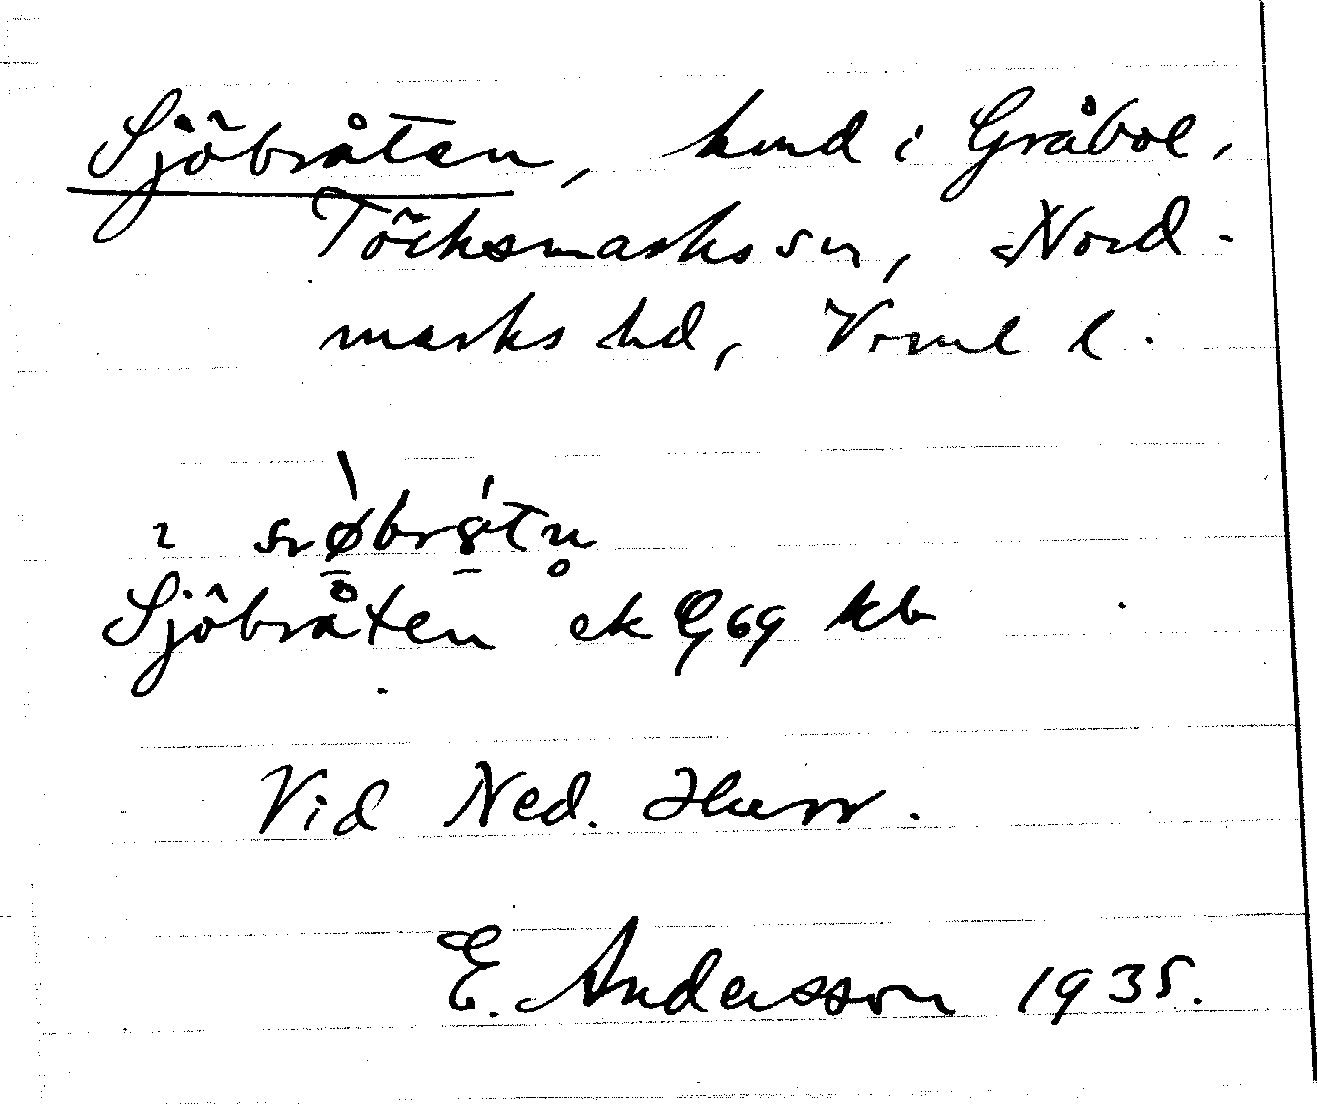 Sjöbråten, hmd i Gråbol,
Töcksmarks sn, Nord-
marks hd, Vrml l.
Sjöbråten ek 969 kb
Vid Ned. Hurr.
E. Andersson 1935.